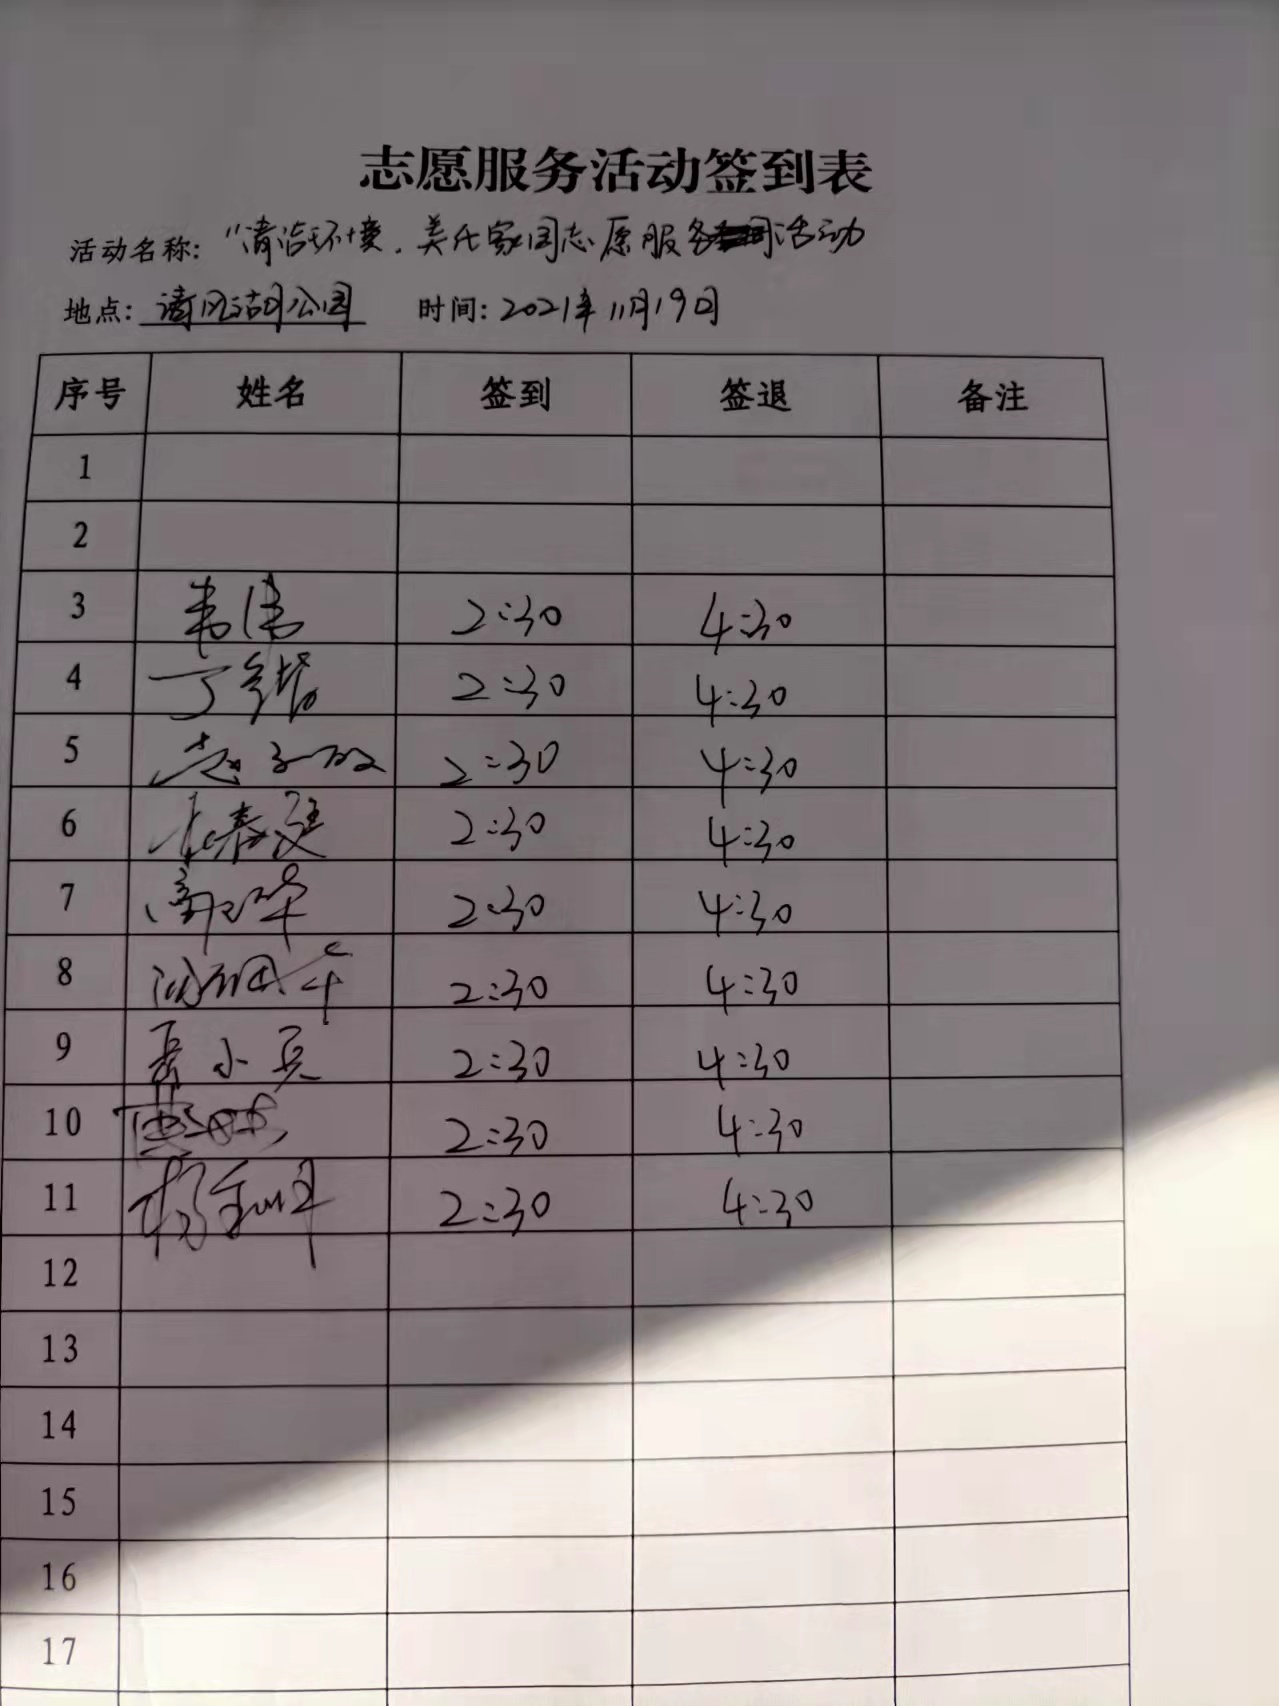 志愿服务活动签到表
活动名称: "清洁环境,美化家园志愿服务活动
地点: 清风湖公园 时间: 2021年11月19日
序号 姓名 签到 签退 备注
1
2
3 韦伟 2:30 4:30
4 丁 2:30 4:30
5 2:30 4:30
6 2:30 4:30
7 2:30 4:30
8 2:30 4:30
9 岳小兵 2:30 4:30
10 2:30 4:30
11 杨 2:30 4:30
12
13
14
15
16
17